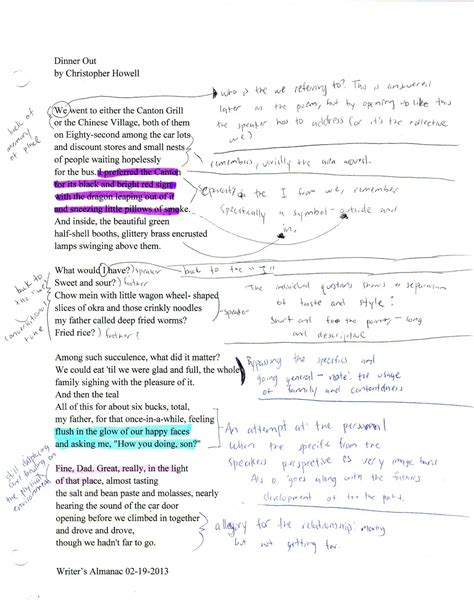 Dinner Out
by Christopher Howell
We went to either the Canton Grill
or the Chinese Village, both of them
on Eighty-second among the car lots
and discount stores and small nests
of people waiting hopelessly
for the bus. I preferred the Canton
for its black and bright red sign
with the dragon leaping out of it
and sneezing little pillows of smoke.
And inside, the beautiful green
half-shell booths, glittery brass encrusted
lamps swinging above them.
What would I have?
Sweet and sour?
Chow mein with little wagon wheel- shaped
slices of okra and those crinkly noodles
my father called deep fried worms?
Fried rice?
Among such succulence, what did it matter?
We could eat 'til we were glad and full, the whole
family sighing with the pleasure of it.
And then the teal
All of this for about six bucks, total,
my father, for that once-in-a-while, feeling
flush in the glow of our happy faces
and asking me, "How you doing, son?"
Fine, Dad. Great, really, in the light
of that place, almost tasting
the salt and bean paste and molasses, nearly
hearing the sound of the car door
opening before we climbed in together
and drove and drove,
though we hadn't far to go.
Writer's Almanac 02-19-2013
who is the we referring to? This is answered
later in the poem, but by opening up like this
the speaker has to address (or it's the collective
we?)
lack of
memory
of place
remembers, the area
the I from we, remember
Specifically a symbol - outside and
in.
speaker
back to the "I"
father
speaker
father
back to
the "we"
conversational
tone
The individual questions shows a separation
of taste and style?
Short and for the - long
and descriptive
Bypassing the specifics and
going general - note: the usage
of family and contentedness
An attempt at the personal
when the specific from the
speakers perspective is very vague
Also goes along with the fathers
development of the poem.
still displaying
over
the physical
environment
allegory for the relationship moving
but not getting far.